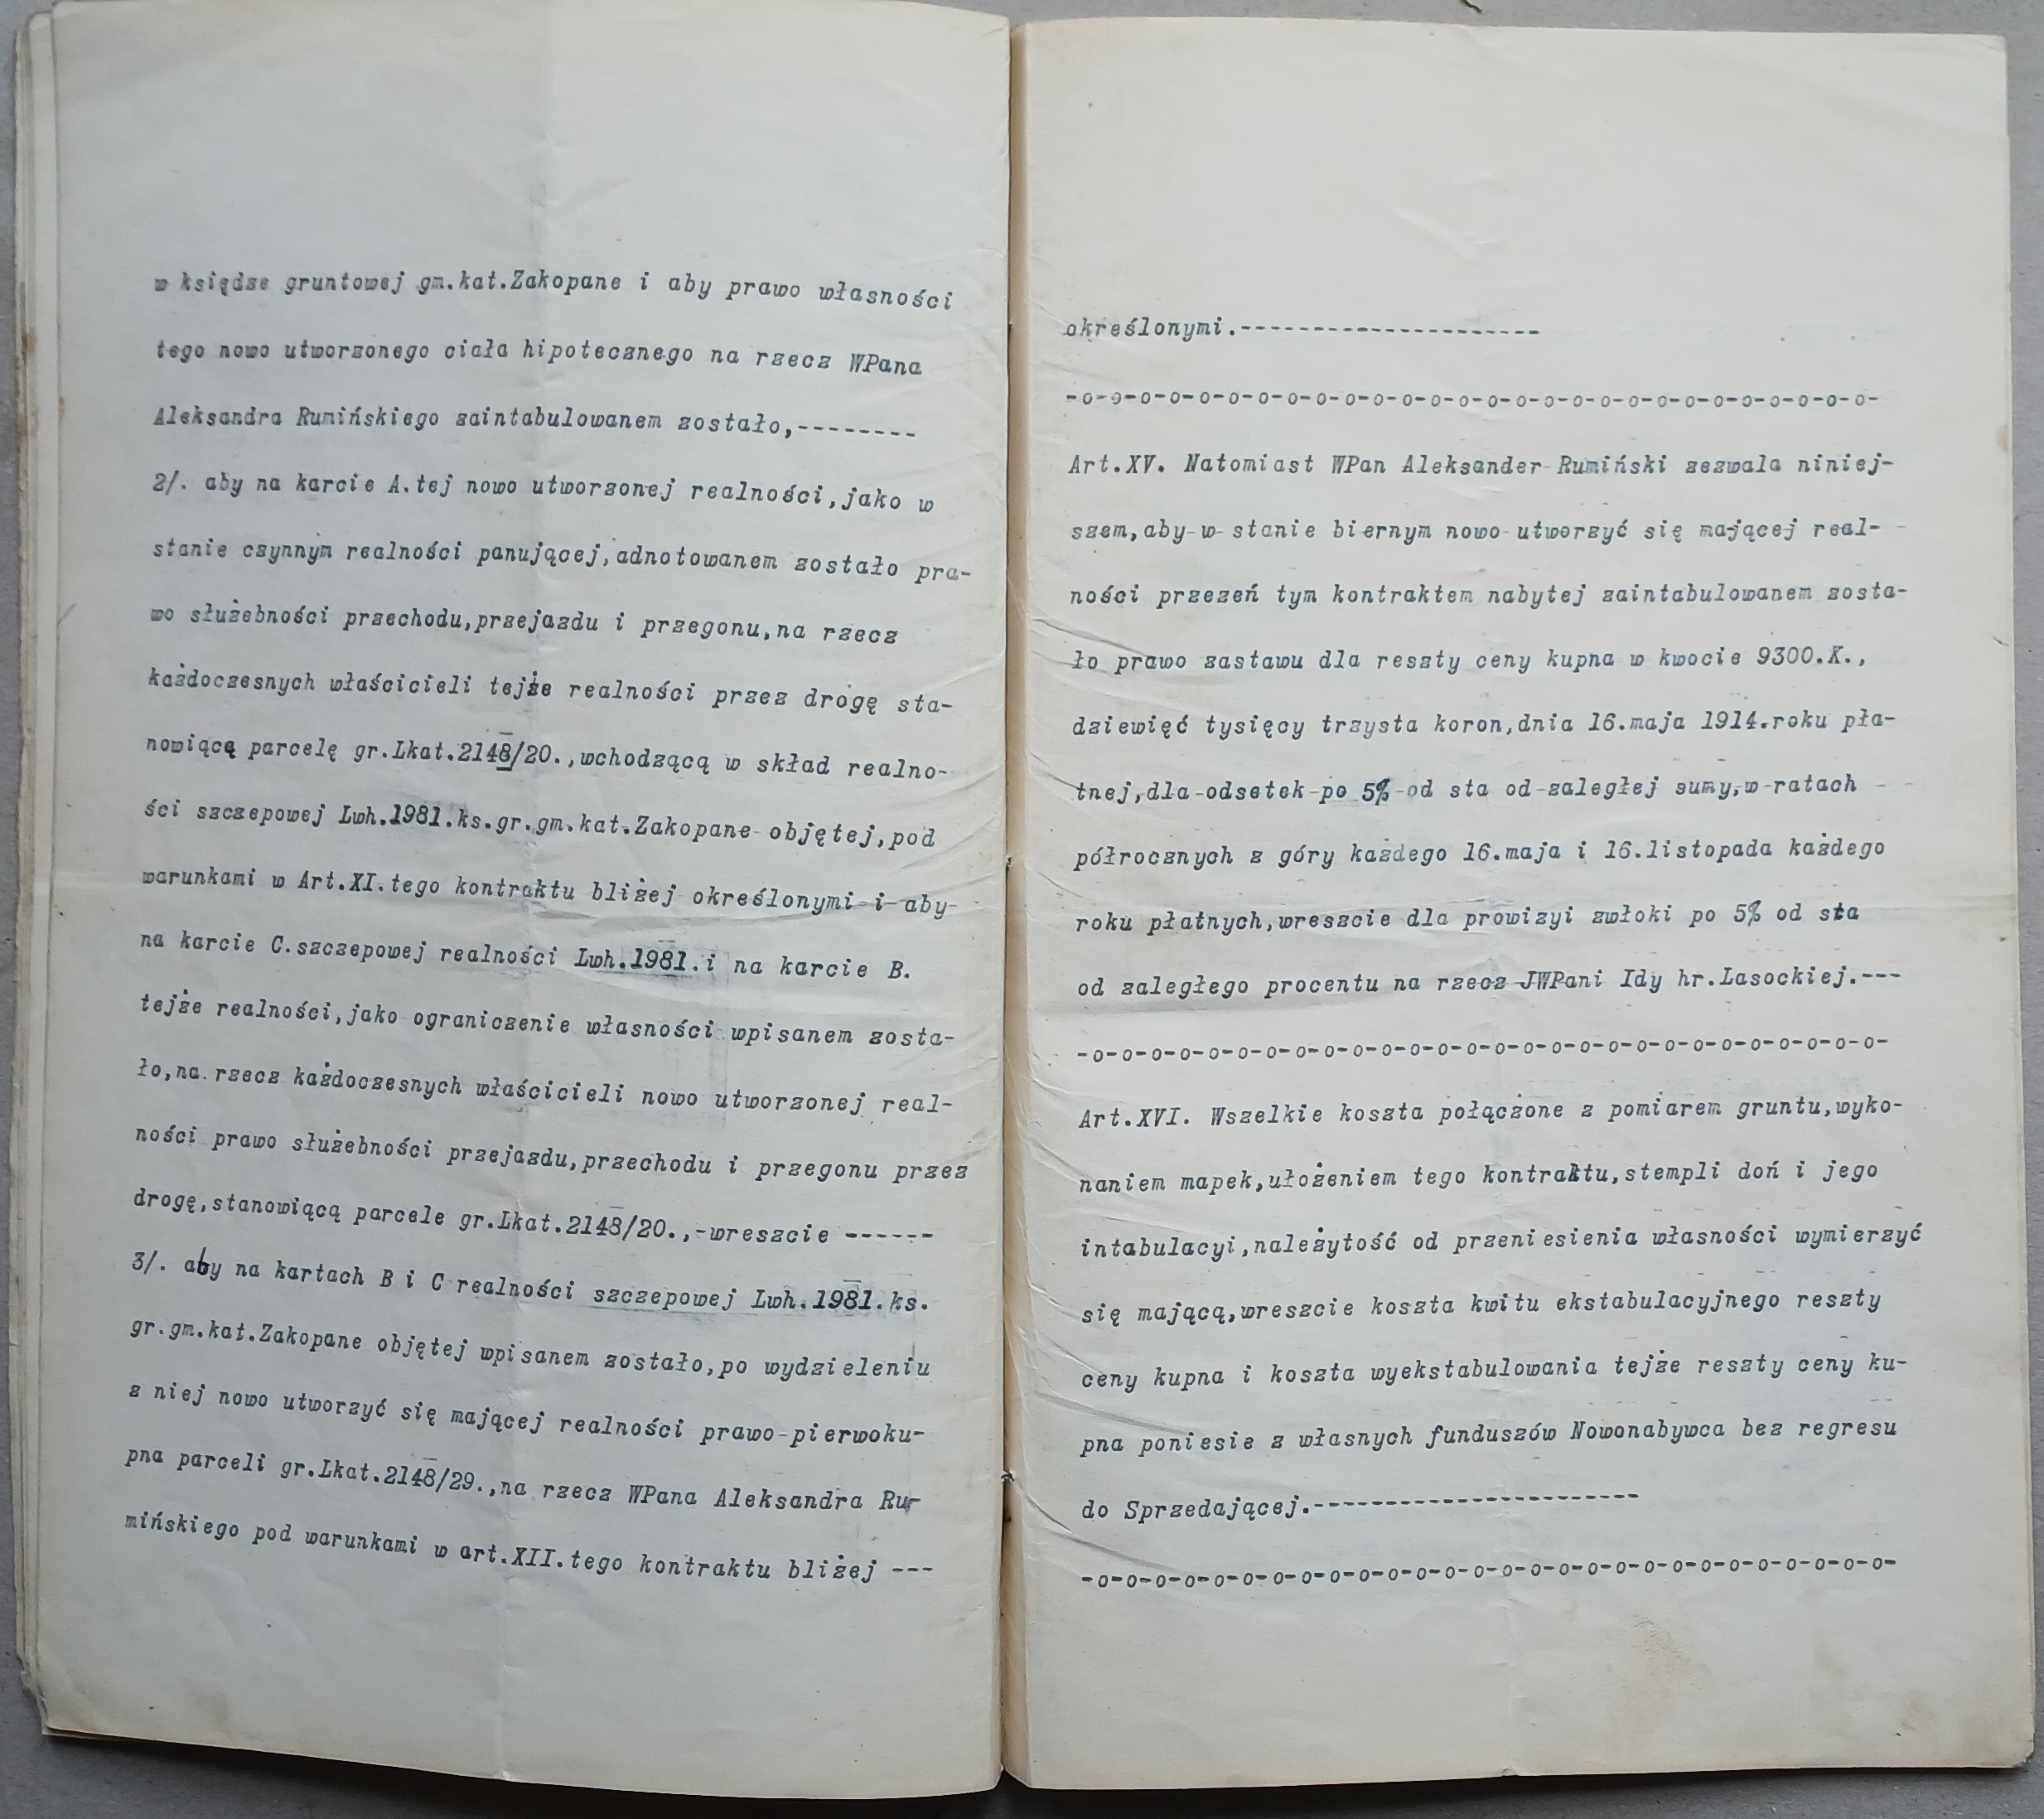 w księdze gruntowej gm.kat.Zakopane i aby prawo własności
tego nowo utworzonego ciała hipotecznego na rzecz WPana
Aleksandra Rumińskiego zaintabulowanem zostało,--------
2/. aby na karcie A.tej nowo utworzonej realności,jako w
stanie czynnym realności panującej,adnotowanem zostało pra-
wo służebności przechodu,przejazdu i przegonu,na rzecz
każdoczesnych właścicieli tejże realności przez drogę sta-
nowiącą parcelę gr.Lkat.2148/20.,wchodzącą w skład realno-
ści szczepowej Lwh.1981.ks.gr.gm.kat.Zakopane objętej,pod
warunkami w Art.XI.tego kontraktu bliżej określonymi i aby
na karcie C.szczepowej realności Lwh.1981.i na karcie B.
tejże realności,jako ograniczenie własności wpisanem zosta-
ło,na rzecz każdoczesnych właścicieli nowo utworzonej real-
ności prawo służebności przejazdu,przechodu i przegonu przez
drogę,stanowiącą parcele gr.Lkat.2148/20.,-wreszcie ------
3/. aby na kartach B i C realności szczepowej Lwh.1981.ks.
gr.gm.kat.Zakopane objętej wpisanem zostało,po wydzieleniu
z niej nowo utworzyć się mającej realności prawo pierwoku-
pna parceli gr.Lkat.2148/29.,na rzecz WPana Aleksandra Ru-
mińskiego pod warunkami w art.XII.tego kontraktu bliżej ---
określonymi.---------------------
-o-o-o-o-o-o-o-o-o-o-o-o-o-o-o-o-o-o-o-o-o-o-o-o-o-o-o-o-
Art.XV. Natomiast WPan Aleksander Rumiński zezwala niniej-
szem,aby w stanie biernym nowo utworzyć się mającej real-
ności przezeń tym kontraktem nabytej zaintabulowanem zosta-
ło prawo zastawu dla reszty ceny kupna w kwocie 9300.K.,
dziewięć tysięcy trzysta koron,dnia 16.maja 1914.roku pła-
tnej,dla odsetek po 5% od sta od zaległej sumy,w ratach
półrocznych z góry każdego 16.maja i 16.listopada każdego
roku płatnych,wreszcie dla prowizyi zwłoki po 5% od sta
od zaległego procentu na rzecz JWPani Idy hr.Lasockiej.---
-o-o-o-o-o-o-o-o-o-o-o-o-o-o-o-o-o-o-o-o-o-o-o-o-o-o-o-o-
Art.XVI. Wszelkie koszta połączone z pomiarem gruntu,wyko-
naniem mapek,ułożeniem tego kontraktu,stempli doń i jego
intabulacyi,należytość od przeniesienia własności wymierzyć
się mającą,wreszcie koszta kwitu ekstabulacyjnego reszty
ceny kupna i koszta wyekstabulowania tejże reszty ceny ku-
pna poniesie z własnych funduszów Nowonabywca bez regresu
do Sprzedającej.-----------------------
-o-o-o-o-o-o-o-o-o-o-o-o-o-o-o-o-o-o-o-o-o-o-o-o-o-o-o-o-